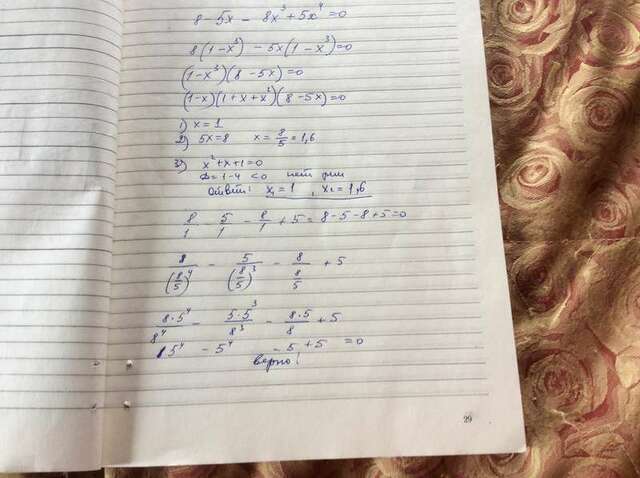 8 - 5x - 8x³ + 5x⁴ = 0
8(1-x³) - 5x(1-x³)=0
(1-x³)(8-5x)=0
(1-x)(1+x+x²)(8-5x)=0
1) x=1
2) 5x=8 x = 8/5 = 1,6
3) x²+x+1=0
D=1-4 <0 нет
Ответ: x₁=1, x₂=1,6
8/1 - 5/1 - 8/1 + 5 = 8-5-8+5=0
8/(8/5)⁴ - 5/(8/5)³ - 8/(8/5) + 5
8·5⁴/8⁴ - 5·5³/8³ - 8·5/8 + 5
5⁴ - 5⁴ - 5 + 5 = 0
верно!
29